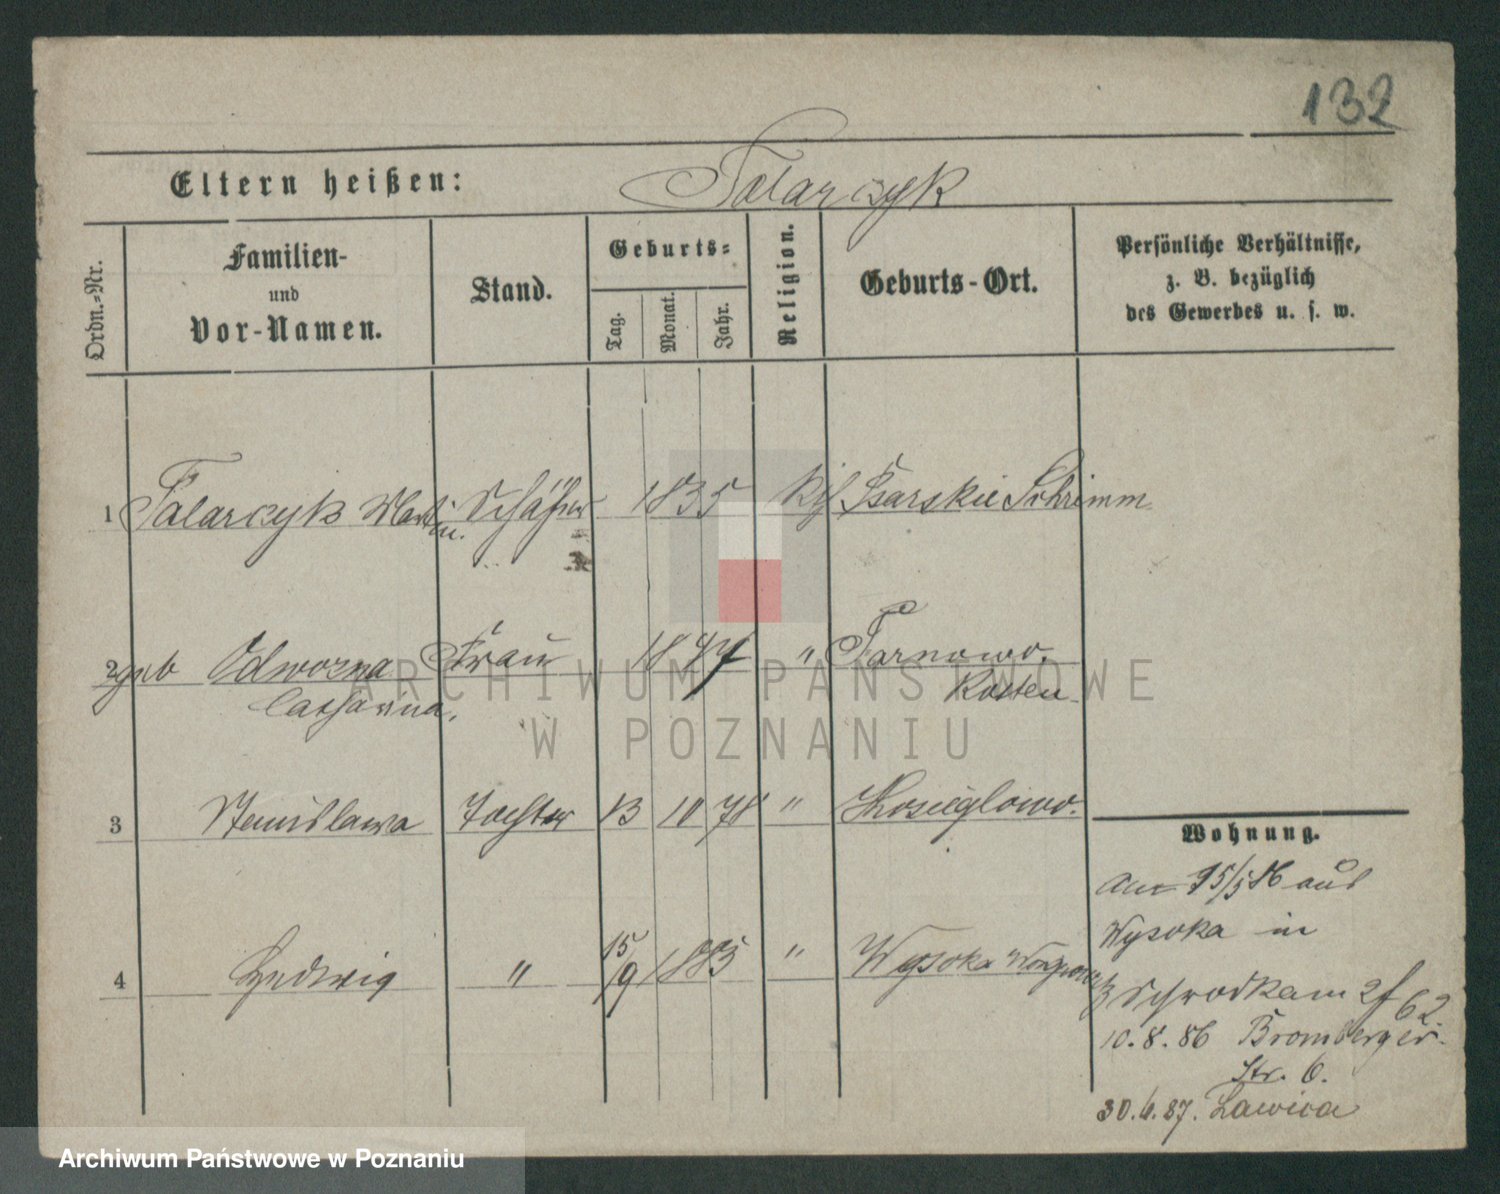 132
Eltern heißen: Tatarczyk
Ordn.-Nr.
Familien-
und
Vor-Namen.
Stand.
Geburts-
Tag.
Monat.
Jahr.
Religion.
Geburts-Ort.
Persönliche Verhältnisse,
z. B. bezüglich
des Gewerbes u. s. w.
1 Tatarczyk Martin. Schäfer 1835 Kth Psarskie Schrimm
2 geb Odwozna Frau 1847 " Tarnowo.
Catharina. Kosten
3 Stanislawa Tochter 13 10 78 "
4 Hedwig " 15/9 1883 " Wysoka
Wohnung.
am 15/5 86 aus
Wysoka in
Schrodka
10.8.86 Bromberger-
Str. 6.
30.6.87. Lawica
ARCHIWUM PAŃSTWOWE
W POZNANIU
Archiwum Państwowe w Poznaniu